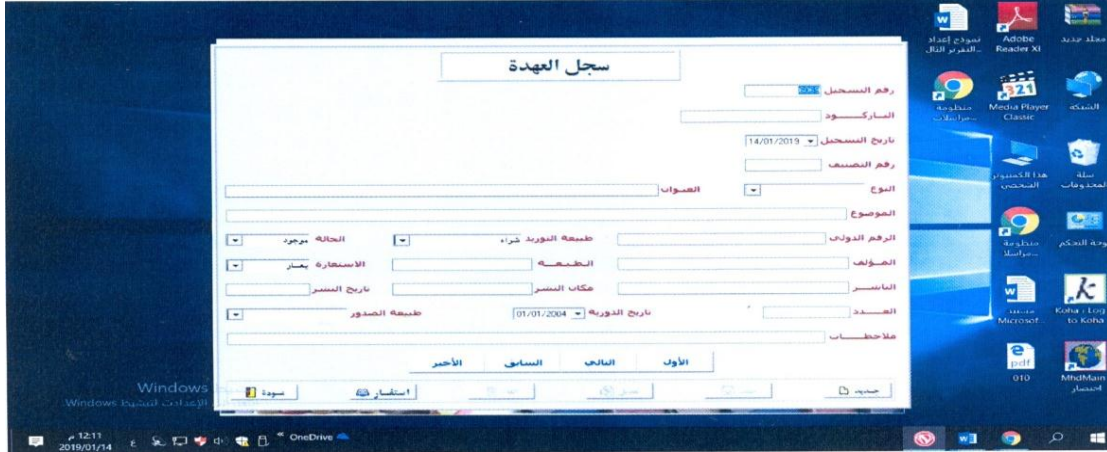 سجل العهدة
رقم التسجيل
الباركـــــود
تاريخ التسجيل 14/01/2019
رقم التصنيف
النوع العنوان
الموضوع
الرقم الدولى طبيعة التوريد شراء الحالة موجود
المـؤلف الـطـبـعـــة الاستعارة يعـار
الناشـــر مكان النشر تاريخ النشر
العـــدد تاريخ الدورية 01/01/2004 طبيعة الصدور
ملاحظـــات
الأول التالى السابق الأخير
جديد استفسار عودة
نموذج إعداد
التقرير الثال...
Adobe
Reader XI
مجلد جديد
منظومة
مراسلات...
Media Player
Classic
الشبكة
هذا الكمبيوتر
الشخصي
سلة
المحذوفات
منظومة
مراسلا...
وحة التحكم
مستند
Microsof...
Koha › Log
to Koha
pdf
010
MhdMain
اختصار
Windows
الإعدادات لتنشيط Windows.
OneDrive
12:11 م
2019/01/14
ع